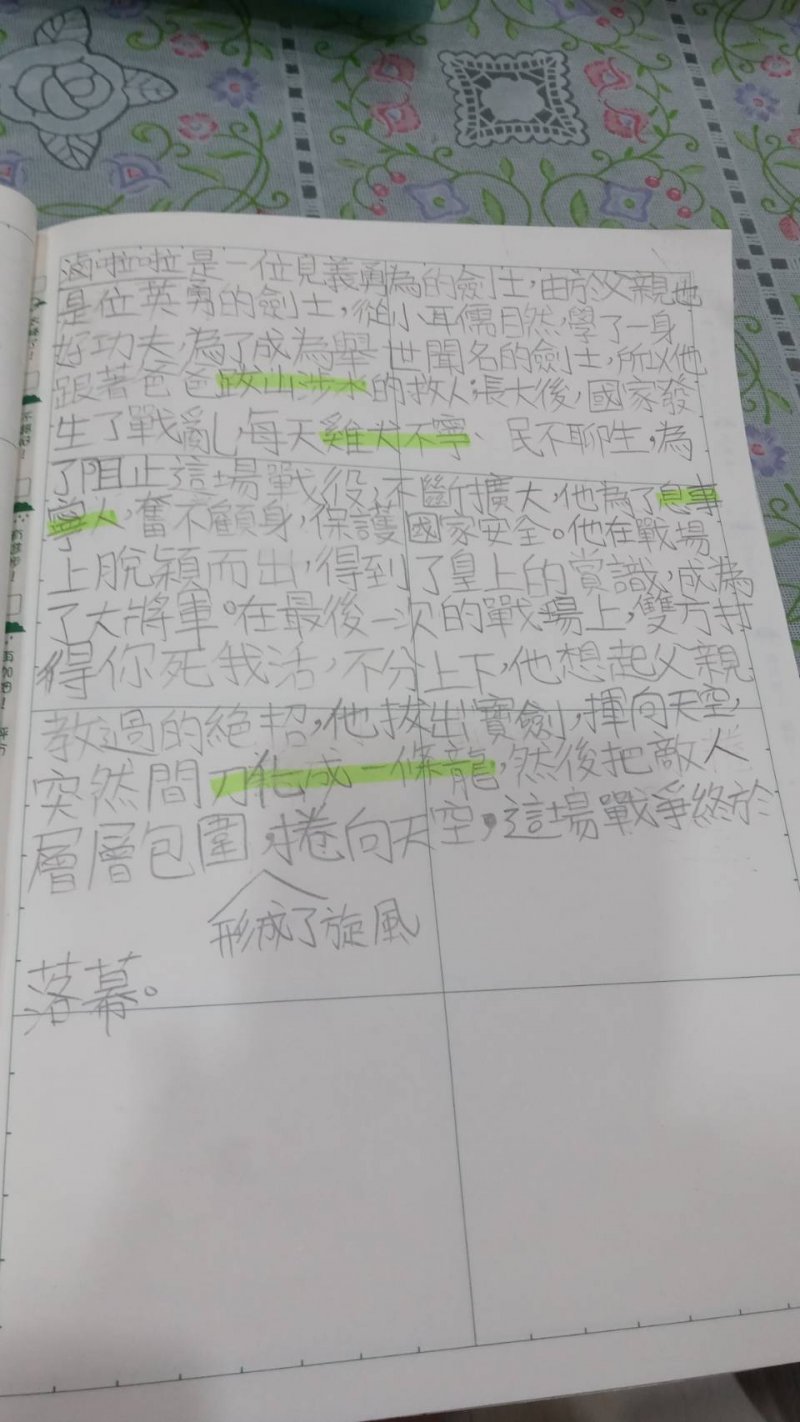 滷啦啦是一位見義勇為的劍士,由於父親也
是位英勇的劍士,從小耳儒目然,學了一身
好功夫,為了成為舉世聞名的劍士,所以他
跟著爸爸跋山涉水的救人;長大後,國家發
生了戰亂,每天雞犬不寧、民不聊生,為
了阻止這場戰役不斷擴大,他為了息事
寧人,奮不顧身,保護國家安全。他在戰場
上脫穎而出,得到了皇上的賞識,成為
了大將軍。在最後一次的戰場上,雙方打
得你死我活,不分上下,他想起父親
教過的絕招,他拔出寶劍,揮向天空,
突然間刀化成一條龍,然後把敵人
層層包圍,捲向天空,這場戰爭終於
形成了旋風
落幕。